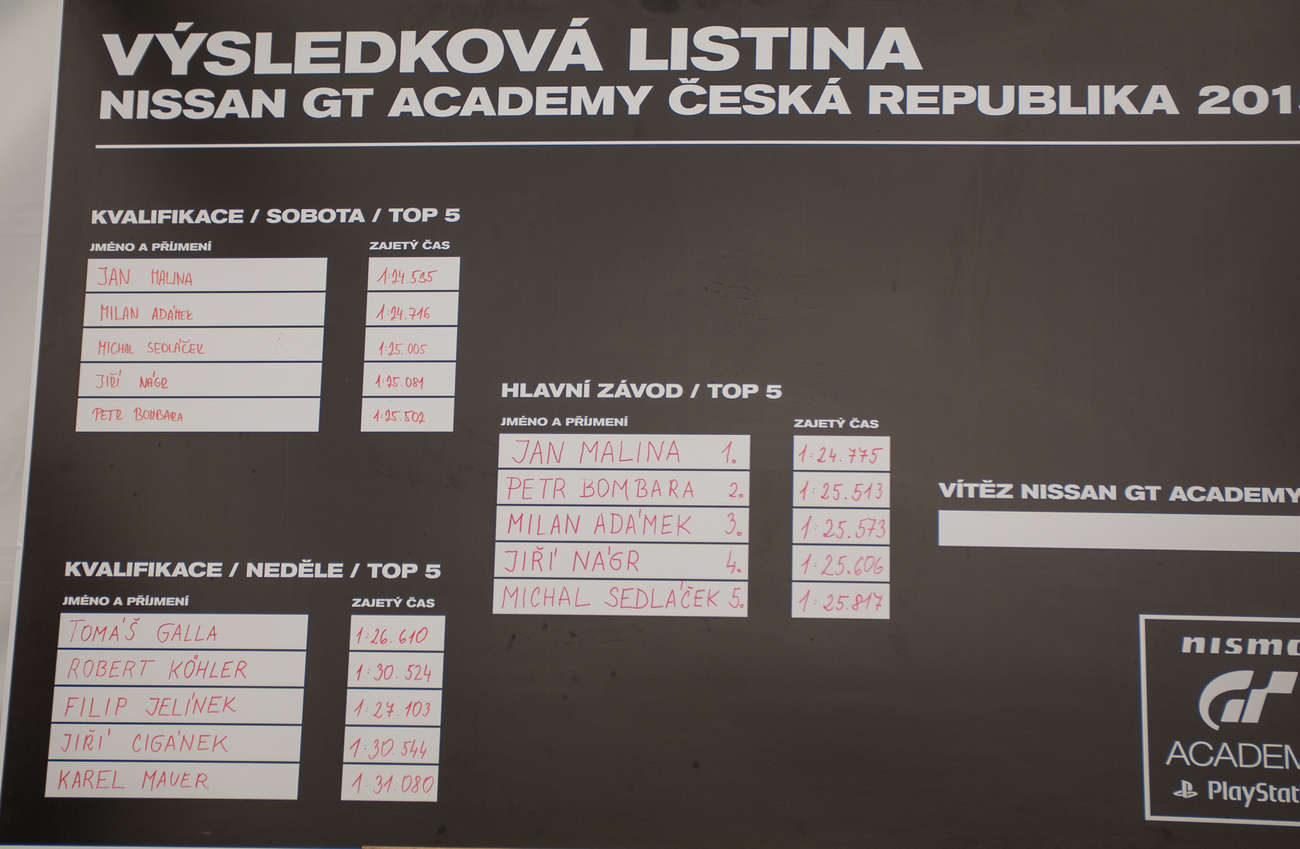 VÝSLEDKOVÁ LISTINA
NISSAN GT ACADEMY ČESKÁ REPUBLIKA
KVALIFIKACE / SOBOTA / TOP 5
JMÉNO A PŘÍJMENÍ ZAJETÝ ČAS
JAN MALINA
MILAN ADÁMEK 1:24.716
MICHAL SEDLÁČEK 1:25.005
JIŘÍ NÁGR 1:25.081
PETR BOMBARA 1:25.502
KVALIFIKACE / NEDĚLE / TOP 5
JMÉNO A PŘÍJMENÍ ZAJETÝ ČAS
TOMÁŠ GALLA 1:26.610
ROBERT KÖHLER 1:30.524
FILIP JELÍNEK 1:27.103
JIŘÍ CIGÁNEK 1:30.544
KAREL MAUER 1:31.080
HLAVNÍ ZÁVOD / TOP 5
JMÉNO A PŘÍJMENÍ ZAJETÝ ČAS
JAN MALINA 1. 1:24.775
PETR BOMBARA 2. 1:25.513
MILAN ADÁMEK 3. 1:25.573
JIŘÍ NÁGR 4. 1:25.606
MICHAL SEDLÁČEK 5. 1:25.817
VÍTĚZ NISSAN GT ACADEMY
nismo
GT
ACADEM
PlayStat